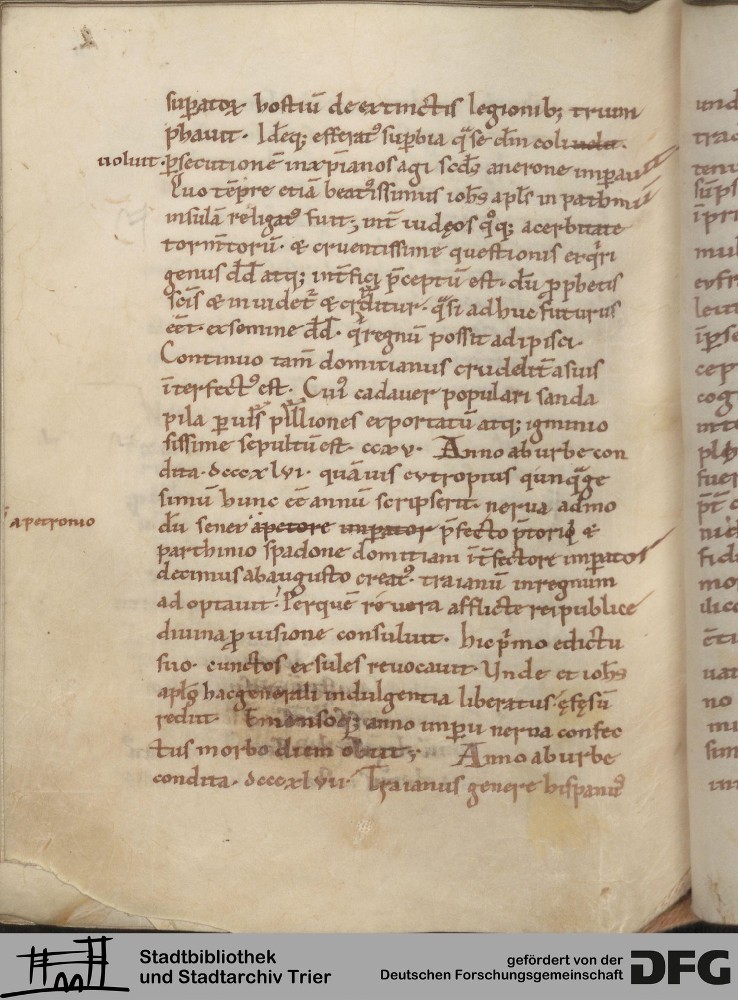 sup̄ator hostiū de extinctis legionib; trium
phauit. Ideq; efferat' sup̄bia q̄ se dn̄m coli
uoluit. p̄secutionē in xp̄ianos agi scd̄s a nerone imp̄auit
Quo tēpre etiā beatissimus ioh̄s apl̄s in pathmū
insulā religat' fuit; int̄ iudęos q̊q; acerbitate
torm̄torū. & cruentissime questionis exq̄ri
genus dd̄ atq; int̄fici p̄ceptū est. dū p̄phetis
scis & inuidet̄ & cr̄ditur. q̄si adhuc futurus
eēt. ex semine dd̄. q̄ regnū possit adipisci.
Continuo tam̄ domitianus crudelit̄ a suis
īterfect' est. Cui' cadauer populari sanda
pila p uil̄s exportatū atq; ignminio
sissime sepultū est. ccxv. Anno ab urbe con
dita. dcccxlvi. quāuis eutropius quinq̄ge
simū hunc eē annū scripserit. nerua admo
dū senex a petronio p̄fecto p̄torio &
parthinio spadone domitiani īt̄fectore imperator
decimus ab augusto creat'. traianū in regnum
adoptauit. Per quē reuera afflicte reipublice
diuina puisione consuluit. hic p̄mo edictu
suo. cunctos exsules reuocauit. Unde et ioh̄s
apl̄s hac generali indulgentia liberatus. ęfęsū
rediit. Emensoq; anno imp̄ii nerua confec
tus morbo diem obiit; Anno ab urbe
condita. dcccxlvii. Traianus genere hispanus
Stadtbibliothek
und Stadtarchiv Trier
gefördert von der
Deutschen Forschungsgemeinschaft
DFG